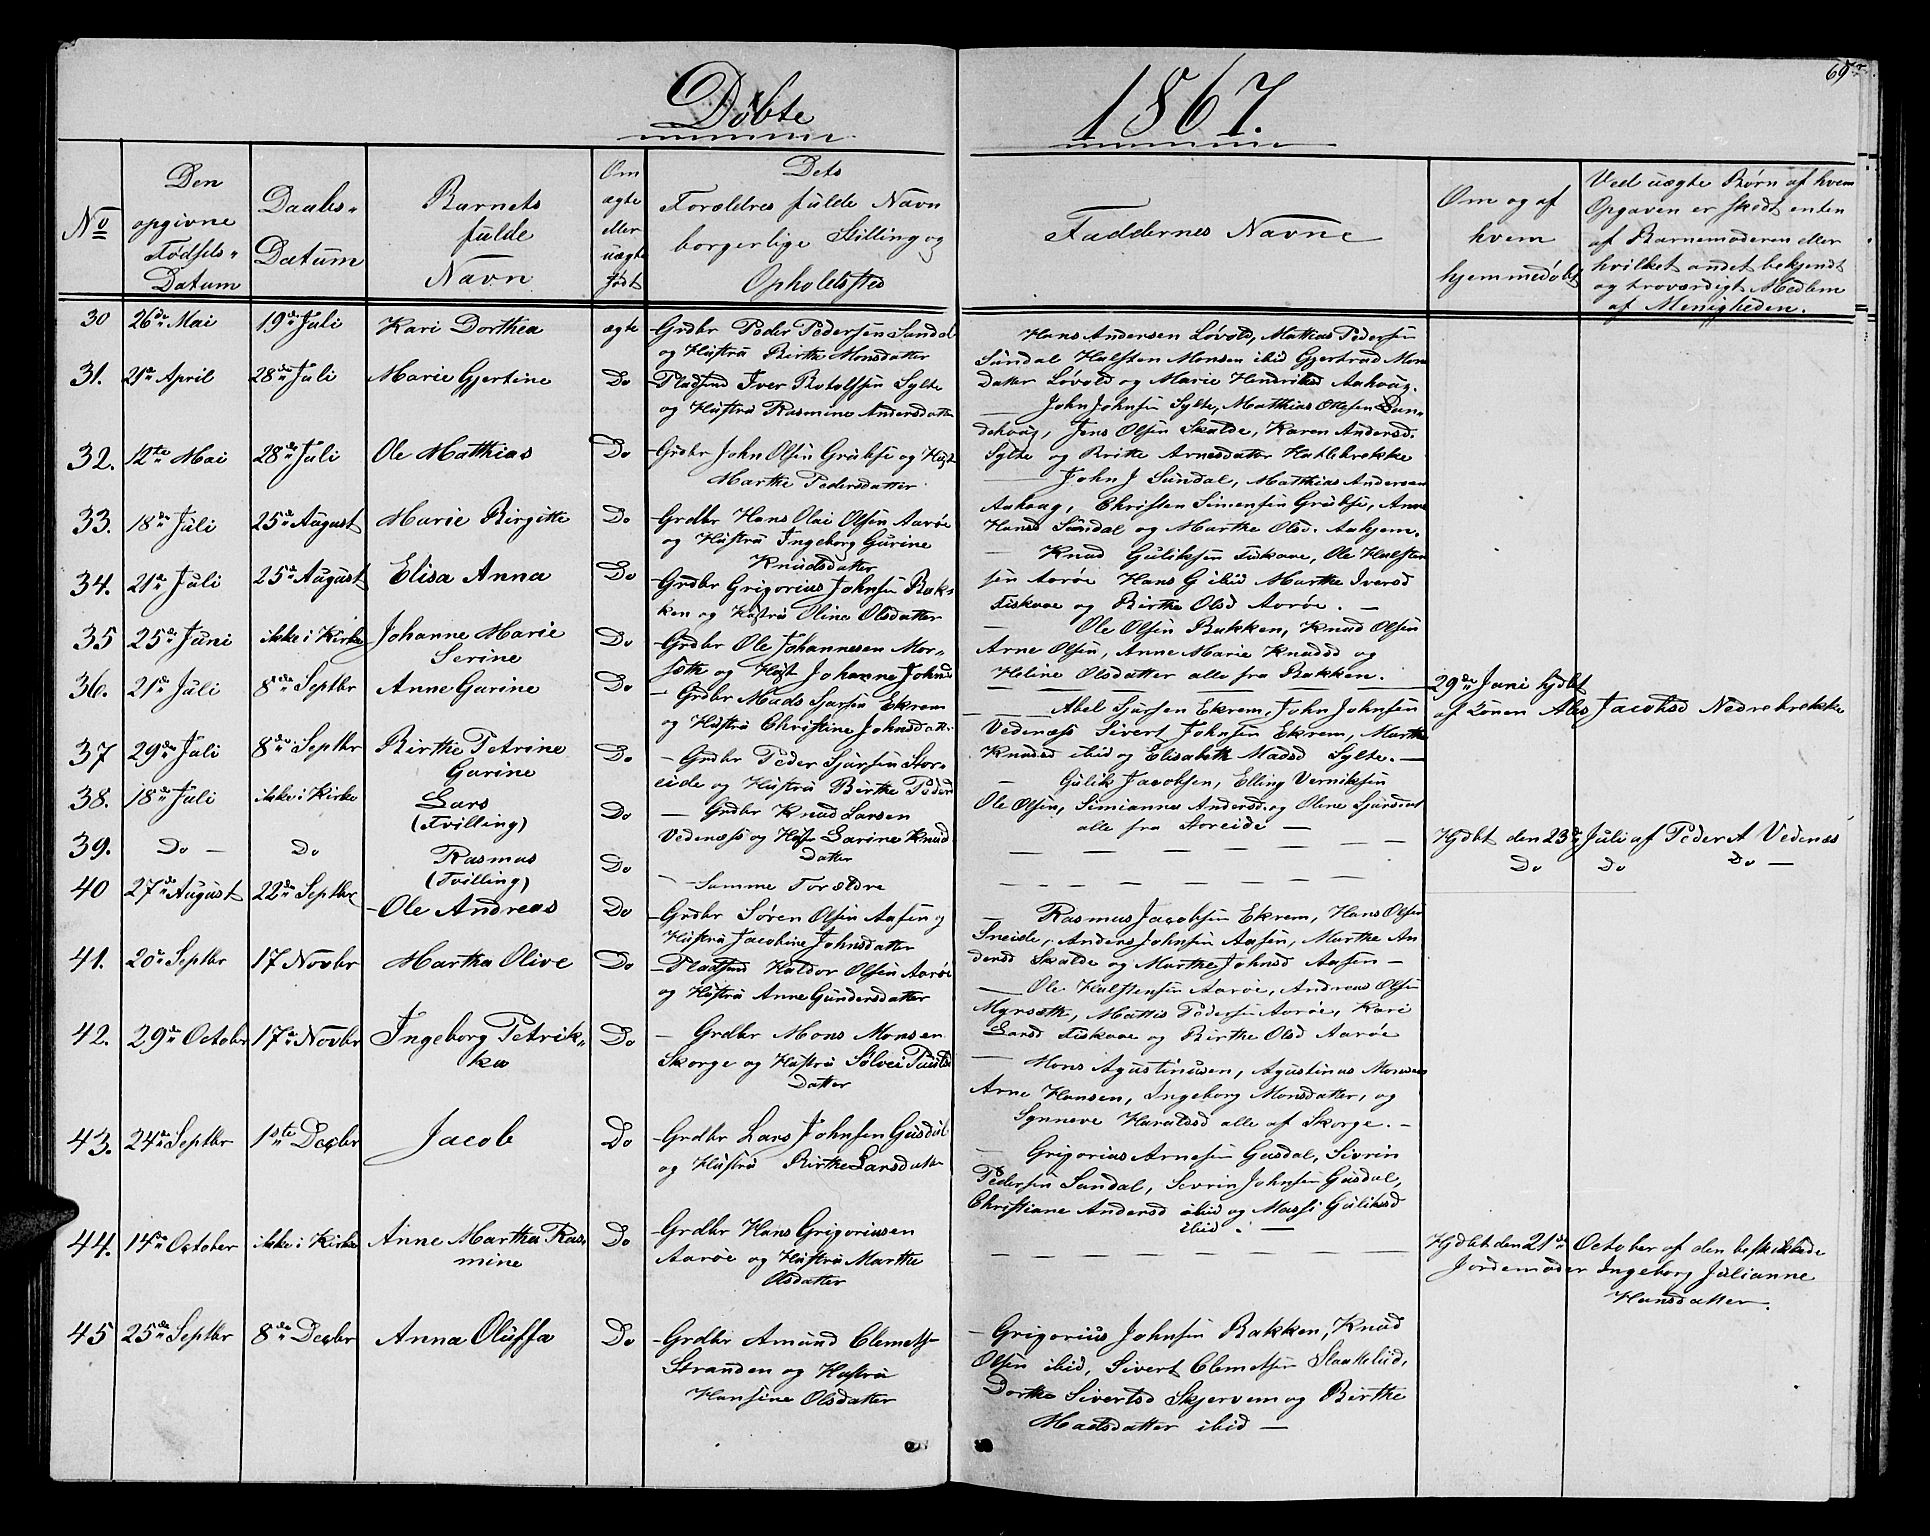 Døbte 1867. 69
No
Den opgivne Fødsels- Datum
Daabs- Datum
Barnets fulde Navn
Om ægte eller uægte født
Dets Forældres fulde Navn borgerlige Stilling og Opholdsted
Faddernes Navne
Om og af hvem hjemmedøbt
Ved uægte Børn af hvem Opgaven er skedt enten af Barnemoderen eller hvilket andet bekjendt og troværdigt Medlem af Menigheden.
30 26de Mai 19de Juli Kari Dorthea ægte Grdbr Peder Pedersen Sundal
og Hustru Birthe Monsdatter
Hans Andersen Løvold, Mathias Pedersen
Sundal Halsten Monsen ibid Gjertrud Mons
datter Løvold og Marie Henriksd Aahvaag.
31. 21de April 28de Juli Marie Gjertine Do Pladsmd Iver Rotolfsen Sylte
og Hustru Rasmine Andersdatter
— John Johnsen Sylte, Matthias Ottesen San-
dehvag, Jens Olsen Skalde, Karen Andersd.
Sylte og Brithe Arnesdatter Hatlebrekke
32. 12te Mai 28de Juli Ole Matthias Do Grdbr John Olsen Grubse og Hust
Marthe Pedersdatter
— John J Sundal, Matthias Andersen
Aahvag, Christen Simensen Grubse, Anne
Hansd Sundal og Marthe Olsd. Aahjem.
33. 18de Juli 25de August Marie Birgitte Do Grdbr Hans Olai Olsen Aarøe
og Hustru Ingeborg Gurine
Knudsdatter
— Knud Guliksen Fiskaae, Ole Halsten
sen Aarøe Hans G ibid Marthe Iversd
Fiskaae og Birthe Olsd Aarøe. —
34. 21de Juli 25de August Elisa Anna Do Grdbr Grigorius Johnsen Bak-
ken og Hustru Oline Olsdatter
— Ole Olsen Bakken, Knud Olsen
Arne Olsen, Anne Marie Knudsd og
Heline Olsdatter alle fra Bakken.
35 25de Juni ikke i Kirke Johanne Marie
Serine Do Grdbr Ole Johannesen Mor-
sæth og Hust Johanne Johnsd
29de Juni hjdbt
af Konen Ales Jacobsd Nedrebrekke
36. 21de Juli 8de Septbr Anne Gurine Do — Grdbr Mads Sjursen Ekrem
og Hustru Christine Johnsdatt.
— Abel Sjursen Ekrem, John Johnsen
Vedenæss Sivert Johnsen Ekrem, Marthe
Knudsd ibid og Elisabeth Madsd Sylte. —
37 29de Juli 8de Septbr Birthe Petrine
Gurine Do — Grdbr Peder Sjursen Stor-
eide og Hustru Birthe Pedersd
— Gulik Jacobsen, Elling Verniksen
Ole Olsen, Simianne Andersd. og Oline Sjursdat
alle fra Storeide —
38. 18de Juli ikke i Kirke Lars
(Tvilling) Do — Grdbr Knud Larsen
Vedenæss og Hustr Larine Knud
datter
Hjdbt den 23de Juli af Peder A Vedenæs
39. Do — Do Rasmus
(Tvilling) Do — Samme Forældre
Do Do Do —
40 27de August 22de Septbr Ole Andreas Do Grdbr Søren Olsen Aasen og
Hustru Jacobine Johnsdatter
— Rasmus Jacobsen Ekrem, Hans Olsen
Sneide, Anders Johnsen Aasen, Marthe An
dersd Skalde og Marthe Johnsd Aasen —
41. 20de Septbr 17 Novbr Martha Olive Do — Pladsmd Haldor Olsen Aarøe
og Hustru Anne Gundersdatter
— Ole Halstensen Aarøe, Andreas Olsen
Myrsæth, Mattis Pedersen Aarøe, Kari
Larsd Fiskaae og Birthe Olsd Aarøe
42. 29de October 17de Novbr Ingeborg Petrik-
ka Do — Grdbr Mons Monsen
Skorge og Hustru Sølvei Pauls
datter
— Mons Agustinusen, Agustinus Monsen
Arne Hansen, Ingeborg Monsdatter, og
Synneve Haraldsd alle af Skorge. —
43. 24de Septbr 1ste Decbr Jacob Do — Grdbr Lars Johnsen Gusdal
og Hustru Birthe Larsdatter
— Grigorius Arnesen Gusdal, Sivrin
Pedersen Sundal, Sevrin Johnsen Gusdal,
Christiane Andersd ibid og Massi Guliksd
ibid. —
44. 14de October ikke i Kirke Anne Martha Ras-
mine Do Grdbr Hans Grigoriusen
Aarøe og Hustru Marthe
Olsdatter
Hjdbt den 21de October af den beskikkede
Jordemoder Ingeborg Julianne
Hansdatter.
45 25de Septbr 8de Decbr Anna Oluffa Do — Grdbr Amund Clemetsen
Stranden og Hustru
Hansine Olsdatter
— Grigorius Johnsen Bakken, Knud
Olsen ibid, Sivert Clemetsen Slaakelid,
Dorthe Sivertsd Skjervem og Birthe
Madsdatter ibid —